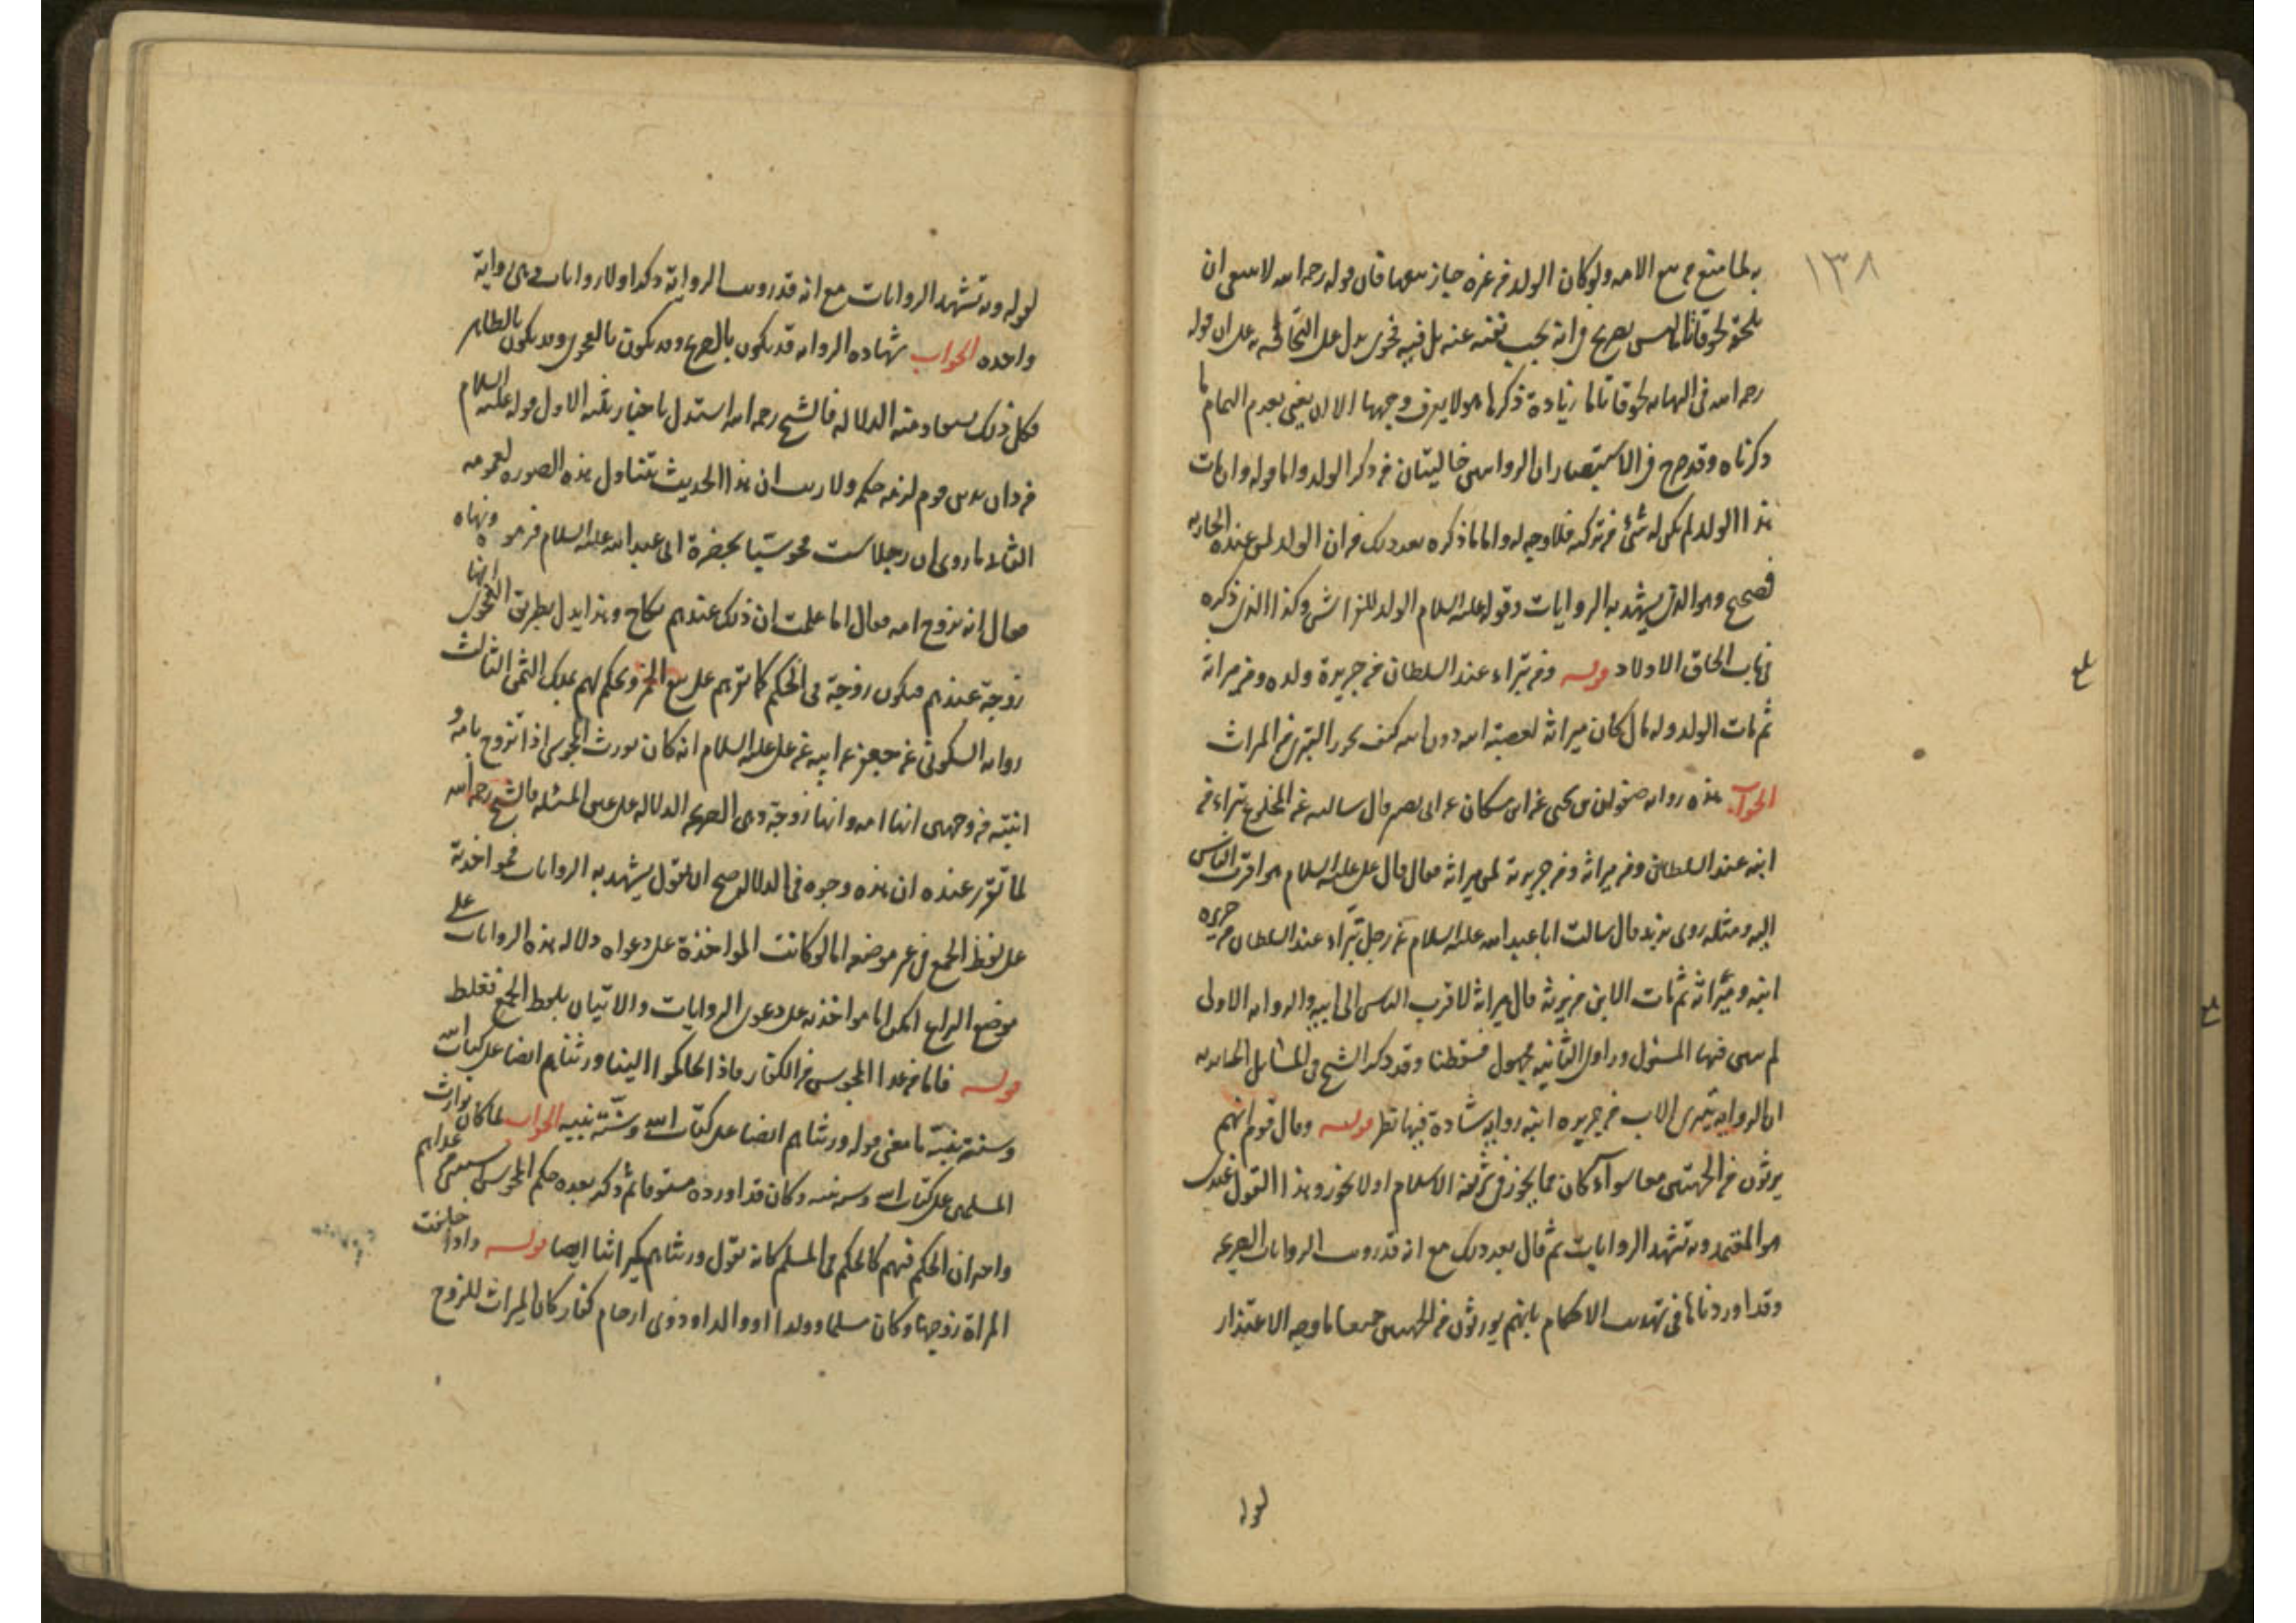 ١٣٨
به لما منع من بيع الامه ولو كان الولد من غيره جاز بيعها فان قوله رحمه الله لا ينبغي ان
يلحقه لحوقا تاما ليس بصريح في انه يجب نفيه عنه بل فيه فحوى يدل على التحاقه به على ان قوله
رحمه الله في النهايه لحوقا تاما زيادة ذكرها هو لا يعرف وجهها الا ان يعني بعدم التمام ما
ذكرناه وقد صرح في الاستبصار ان الروايتين خاليتان من ذكر الولد واما قوله وان مات
هذا الولد لم يكن له شئ من تركته فلا وجه له واما ما ذكره بعد ذلك من ان الولد لمن عنده الجاريه
فصحيح وهو الذي يشهد به الروايات وقوله عليه السلام الولد للفراش وكذا الذي ذكره
في باب الحاق الاولاد قوله ومن تبراء عند السلطان من جريرة ولده ومن ميراثه
ثم مات الولد وله مال كان ميراثه لعصبة ابيه دون ابيه كيف يحرر التبري من الميراث
الجواب هذه روايه صفوان بن يحيى عن ابن مسكان عن ابي بصير قال سالته عن المخلوع تبراء منه
ابنه عند السلطان ومن ميراثه ومن جريرته لمن ميراثه فقال قال علي عليه السلام هو اقرب الناس
اليه ومثله روى بريد قال سالت ابا عبد الله عليه السلام عن رجل تبراء عند السلطان من جريره
ابنه وميراثه ثم مات الابن من يرثه قال ميراثه لاقرب الناس الى ابيه والروايه الاولى
لم يبين فيها المسئول وراوي الثانيه مجهول فسقطتا وقد ذكر الشيخ في المسائل الحايريه
ان الروايه بتبري الاب من جريره ابنه روايه شاذة فيها نظر قوله وقال قوم انهم
يرثون من الجهتين معا سواء كان مما يجوز في شريعة الاسلام او لا يجوز وهذا القول عندي
هو المعتمد وبه تشهد الروايات ثم قال بعد ذلك مع انه قد رويت الروايات الصريحه
وقد اوردناها في تهذيب الاحكام بانهم يورثون من الجهتين جميعا ما وجه الاعتذار
لقوله
لقوله وبه تشهد الروايات مع انه قد رويت الرواية وذكر اولا روايات وهي رواية
واحده الجواب شهاده الروايه قد يكون بالصريح وقد يكون بالفحوى وقد يكون بالظاهر
فكل ذلك يستفاد منه الدلاله فالشيخ رحمه الله استدل باخبار ثلثه الاول قوله عليه السلام
من دان بدين قوم لزمه حكمه ولا ريب ان هذا الحديث يتناول هذه الصوره لعمومه
الثاني ما روي ان رجلا سب مجوسيا بحضرة ابي عبد الله عليه السلام فزبره ونهاه
فقال انه تزوج امه فقال اما علمت ان ذلك عندهم نكاح وهذا يدل بطريق الفحوى انها
زوجة عندهم فيكون زوجة في الحكم كما نقرهم على بيع الخمر ونحكم لهم بملك الثمن الثالث
روايه السكوني عن جعفر عن ابيه عن علي عليه السلام انه كان يورث المجوسي اذا تزوج بامه و
ابنته من وجهين انها امه وانها زوجة وهي الصريحه الدلاله على عين المسئله فالشيخ رحمه الله
لما تقرر عنده ان هذه وجوه في الدلاله صح ان يقول يشهد به الروايات فمواخذته
على لفظ الجمع في غير موضعه اما لو كانت المواخذة على دعواه دلاله هذه الروايات على
موضع النزاع امكن اما مواخذته على دعوى الروايات والاتيان بلفظ الجمع فغلط
قوله فاما من عدا المجوس من الكفار فاذا تحاكموا الينا ورثناهم ايضا على كتاب الله
وسنة نبيه ما معنى قوله ورثناهم ايضا على كتاب الله وسنة نبيه الجواب لما كان توارث
المسلمين على كتاب الله وسنة نبيه وكان قد اورده مستوفا ثم ذكر بعده حكم المجوس
واخبر ان الحكم فيهم كالحكم في المسلم كانه يقول ورثناهم كميراثنا ايضا قوله واذا خلفت
المراة زوجها وكان مسلما وولدا او والدا او ذوي ارحام كفار كان الميراث للزوج